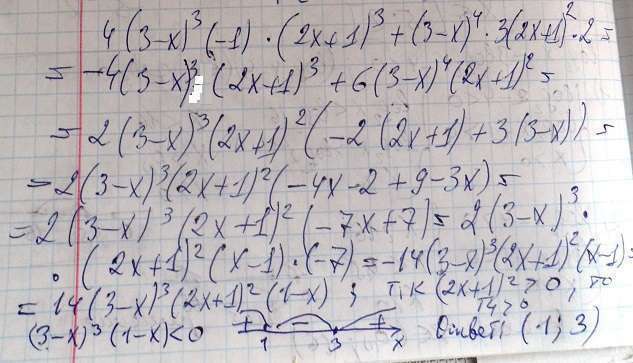 4(3-x)³(-1)·(2x+1)³+(3-x)⁴·3(2x+1)²·2=
=-4(3-x)³(2x+1)³+6(3-x)⁴(2x+1)²=
=2(3-x)³(2x+1)²(-2(2x+1)+3(3-x))=
=2(3-x)³(2x+1)²(-4x-2+9-3x)=
=2(3-x)³(2x+1)²(-7x+7)=2(3-x)³·
·(2x+1)²(x-1)·(-7)=-14(3-x)³(2x+1)²(x-1)=
=14(3-x)³(2x+1)²(1-x); т.к (2x+1)²>0; то
14>0
(3-x)³(1-x)<0 + - + 1 3 x Ответ: (1;3)